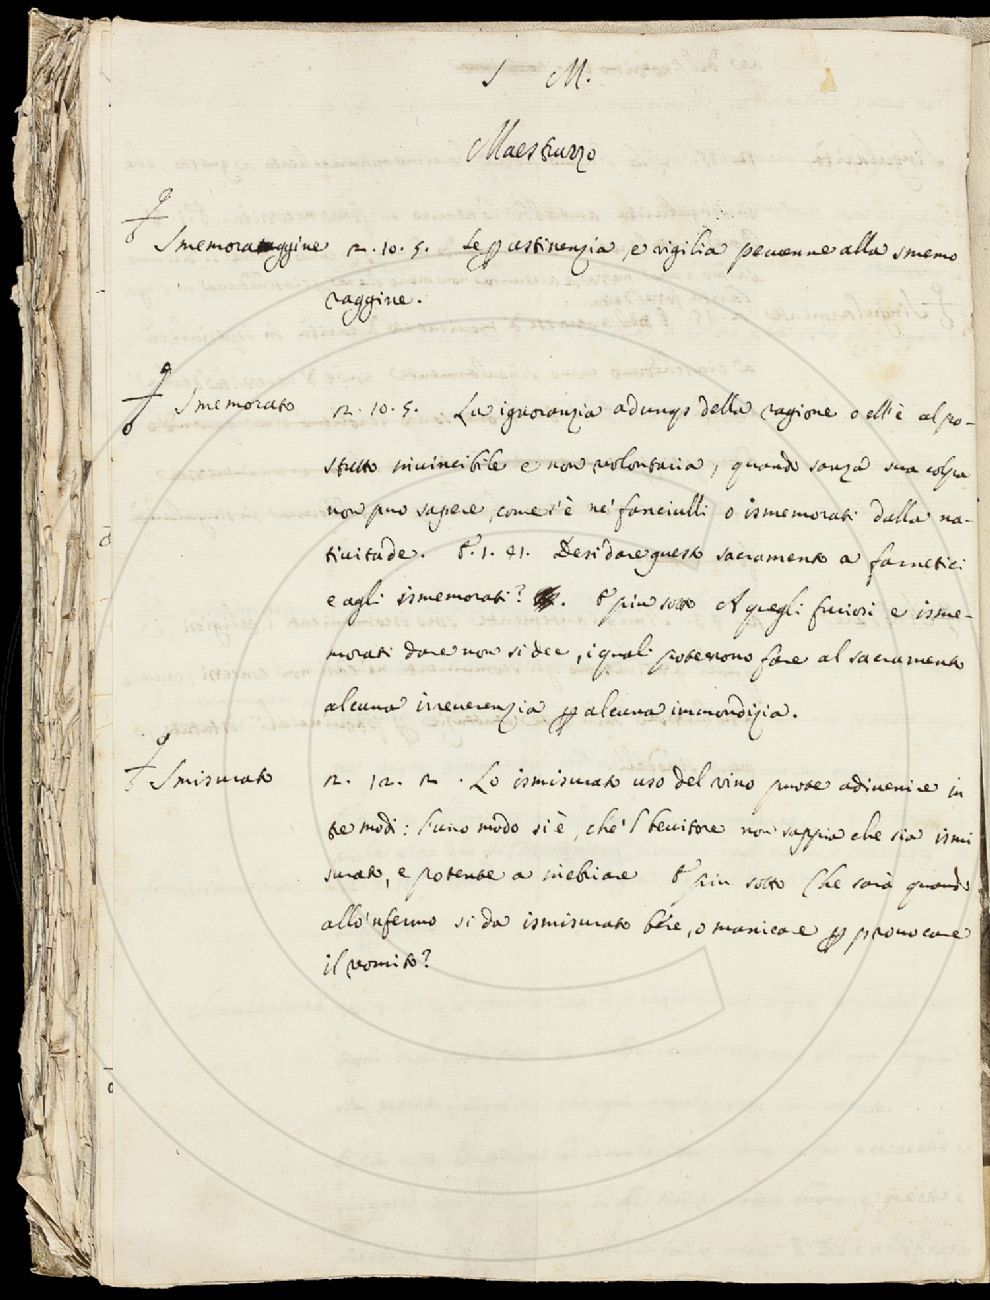 S M.
Maestruzzo
Smemoraggine 2.10.5. Se ꝑ astinenzia, e vigilia pervenne alla smemo
raggine.
Smemorato 2.10.5. La ignoranzia adunqs della ragione o ell'è al po-
stutto invincibile e non volontaria, quando sanza sua colpa
non può sapere, come s'è ne' fanciulli o ismemorati dalla na-
tivitade. E 1.41. Desi dare questo sacramento a farnetici
e agli ismemorati? E piu sotto A quegli furiosi e isme-
morati dare non si dee, i quali potessono fare al sacramento
alcuna irreverenzia ꝑ alcuna immondizia.
Smisurato 2. 12. 2. Lo ismisurato uso del vino puote adivenire in
tre modi: l'uno modo si è, che'l bevitore non sappia che sia ismi
surato, e potente a inebiare E piu sotto Che sarà quando
allo'nfermo si da ismisurato bere, o manicare ꝑ provocare
il vomito?